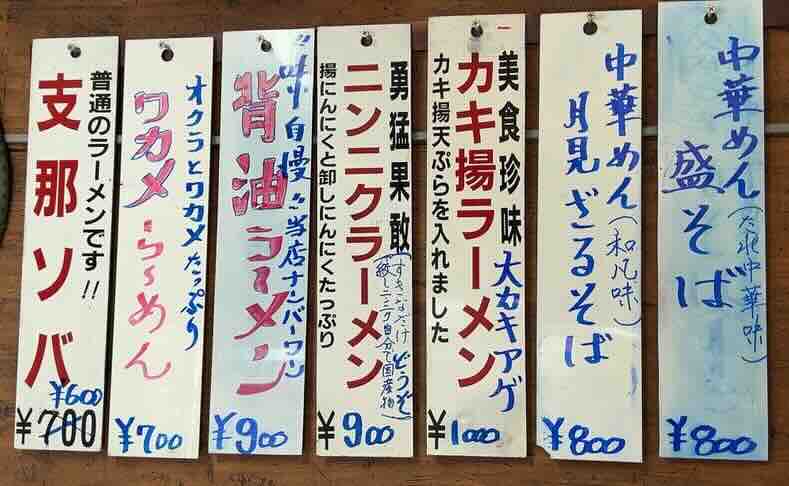 中華めん(たれ中華味)
盛そば
¥800
中華めん(和風味)
月見ざるそば
¥800
美食珍味 大カキアゲ
カキ揚ラーメン
カキ揚天ぷらを入れました
¥1000
勇猛果敢(すきなだけ どうぞ
絞しニンニク自分で国産物)
ニンニクラーメン
揚にんにくと卸しにんにくたっぷり
¥900
"味自慢"当店ナンバーワン
背油ラーメン
¥900
オクラとワカメたっぷり
ワカメら〜めん
¥700
普通のラーメンです!!
支那ソバ
¥600
¥700